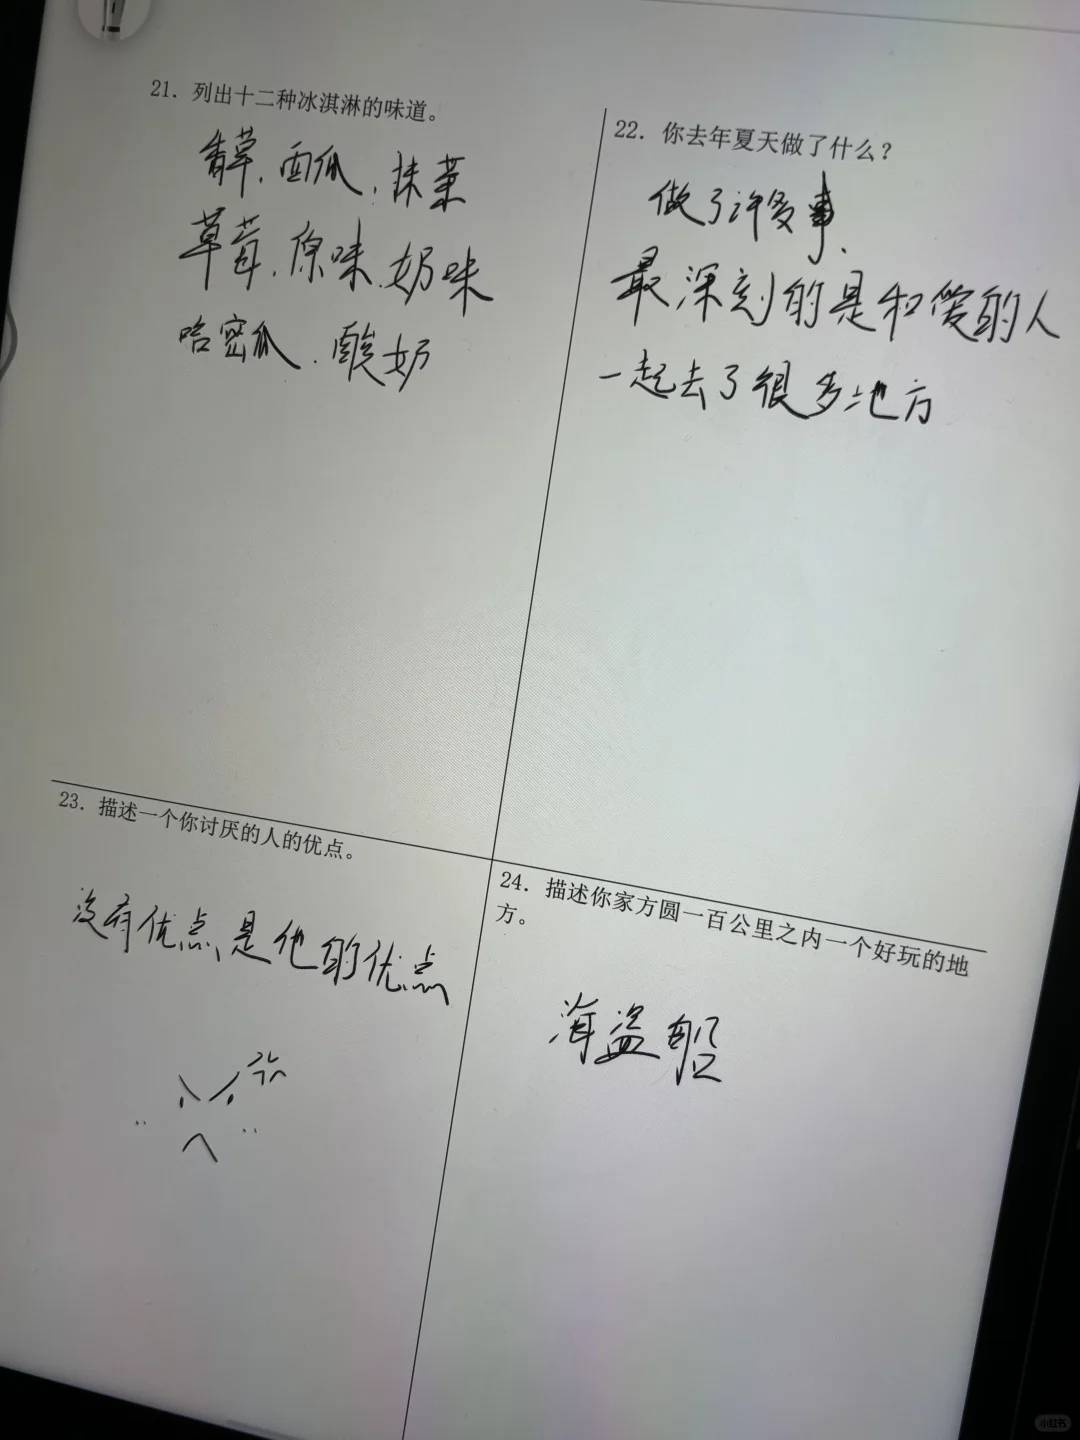 21. 列出十二种冰淇淋的味道。
香草、西瓜、抹茶
草莓、原味、奶味
哈密瓜、酸奶
22. 你去年夏天做了什么？
做了许多事、
最深刻的是和爱的人
一起去了很多地方
23. 描述一个你讨厌的人的优点。
没有优点是他的优点
24. 描述你家方圆一百公里之内一个好玩的地
方。
海盗船
小红书